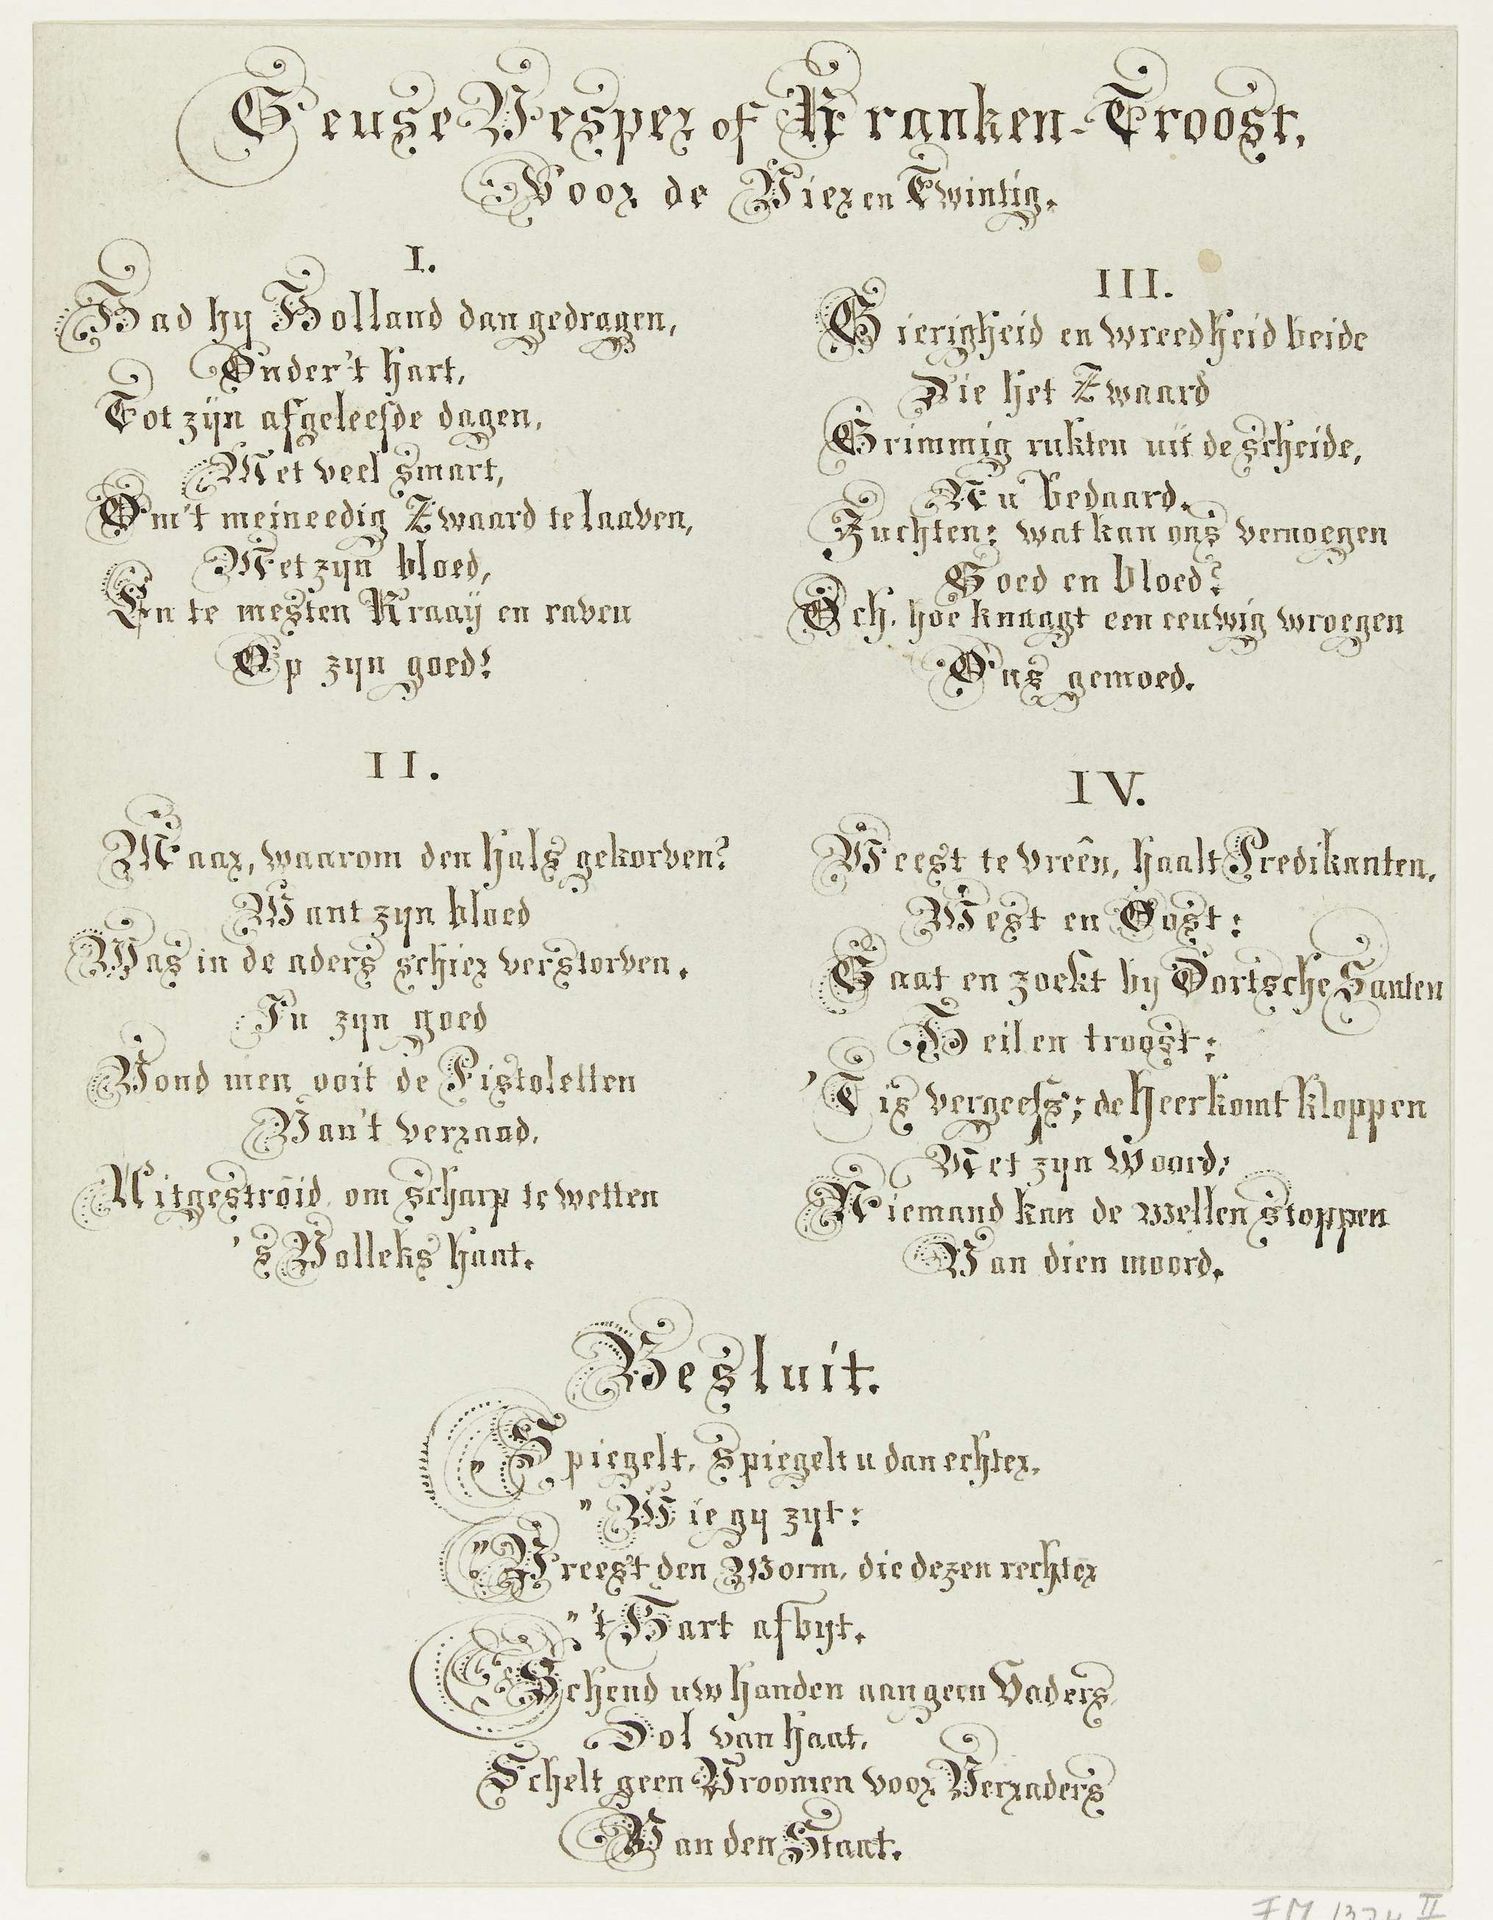 Geuse Vesper of Kranken-Troost.
Voor de Vier en Twintig.
I.
Had hy Holland dan gedragen,
Onder 't hart,
Tot zijn afgeleefde dagen,
Met veel smart,
Om 't meineedig Zwaard te laaven,
Met zyn bloed,
En te mesten Kraaij en raven
Op zyn goed?
II.
Maar, waarom den hals gekorven?
Want zyn bloed
Was in de aders schier verstorven.
In zyn goed
Vond men ooit de Pistoletten
Van 't verraad,
Uitgestroid, om scharp te wetten
's Volleks haat.
III.
Gierigheid en wreedheid beide
Die het Zwaard
Grimmig rukten uit de scheide,
Nu bedaard.
Zuchten: wat kan ons vernoegen
Goed en bloed?
Och, hoe knaagt een eeuwig wroegen
Ons gemoed.
IV.
Weest te vreên, haalt Predikanten,
West en Oost:
Gaat en zoekt by Dortsche Santen
Heil en troost:
'T is vergeefs; de Heer komt kloppen
Met zyn woord;
Niemand kan de wellen stoppen
Van dien moord.
Besluit.
"Spiegelt, Spiegelt u dan echter,
"Wie gy zyt:
"Vreest den Worm, die dezen rechter
"'t Hart afbyt.
Schend uw handen aan geen Vaders,
Dol van haat,
Schelt geen Vroomen voor Verraders
Van den Staat.
FM 1374 II